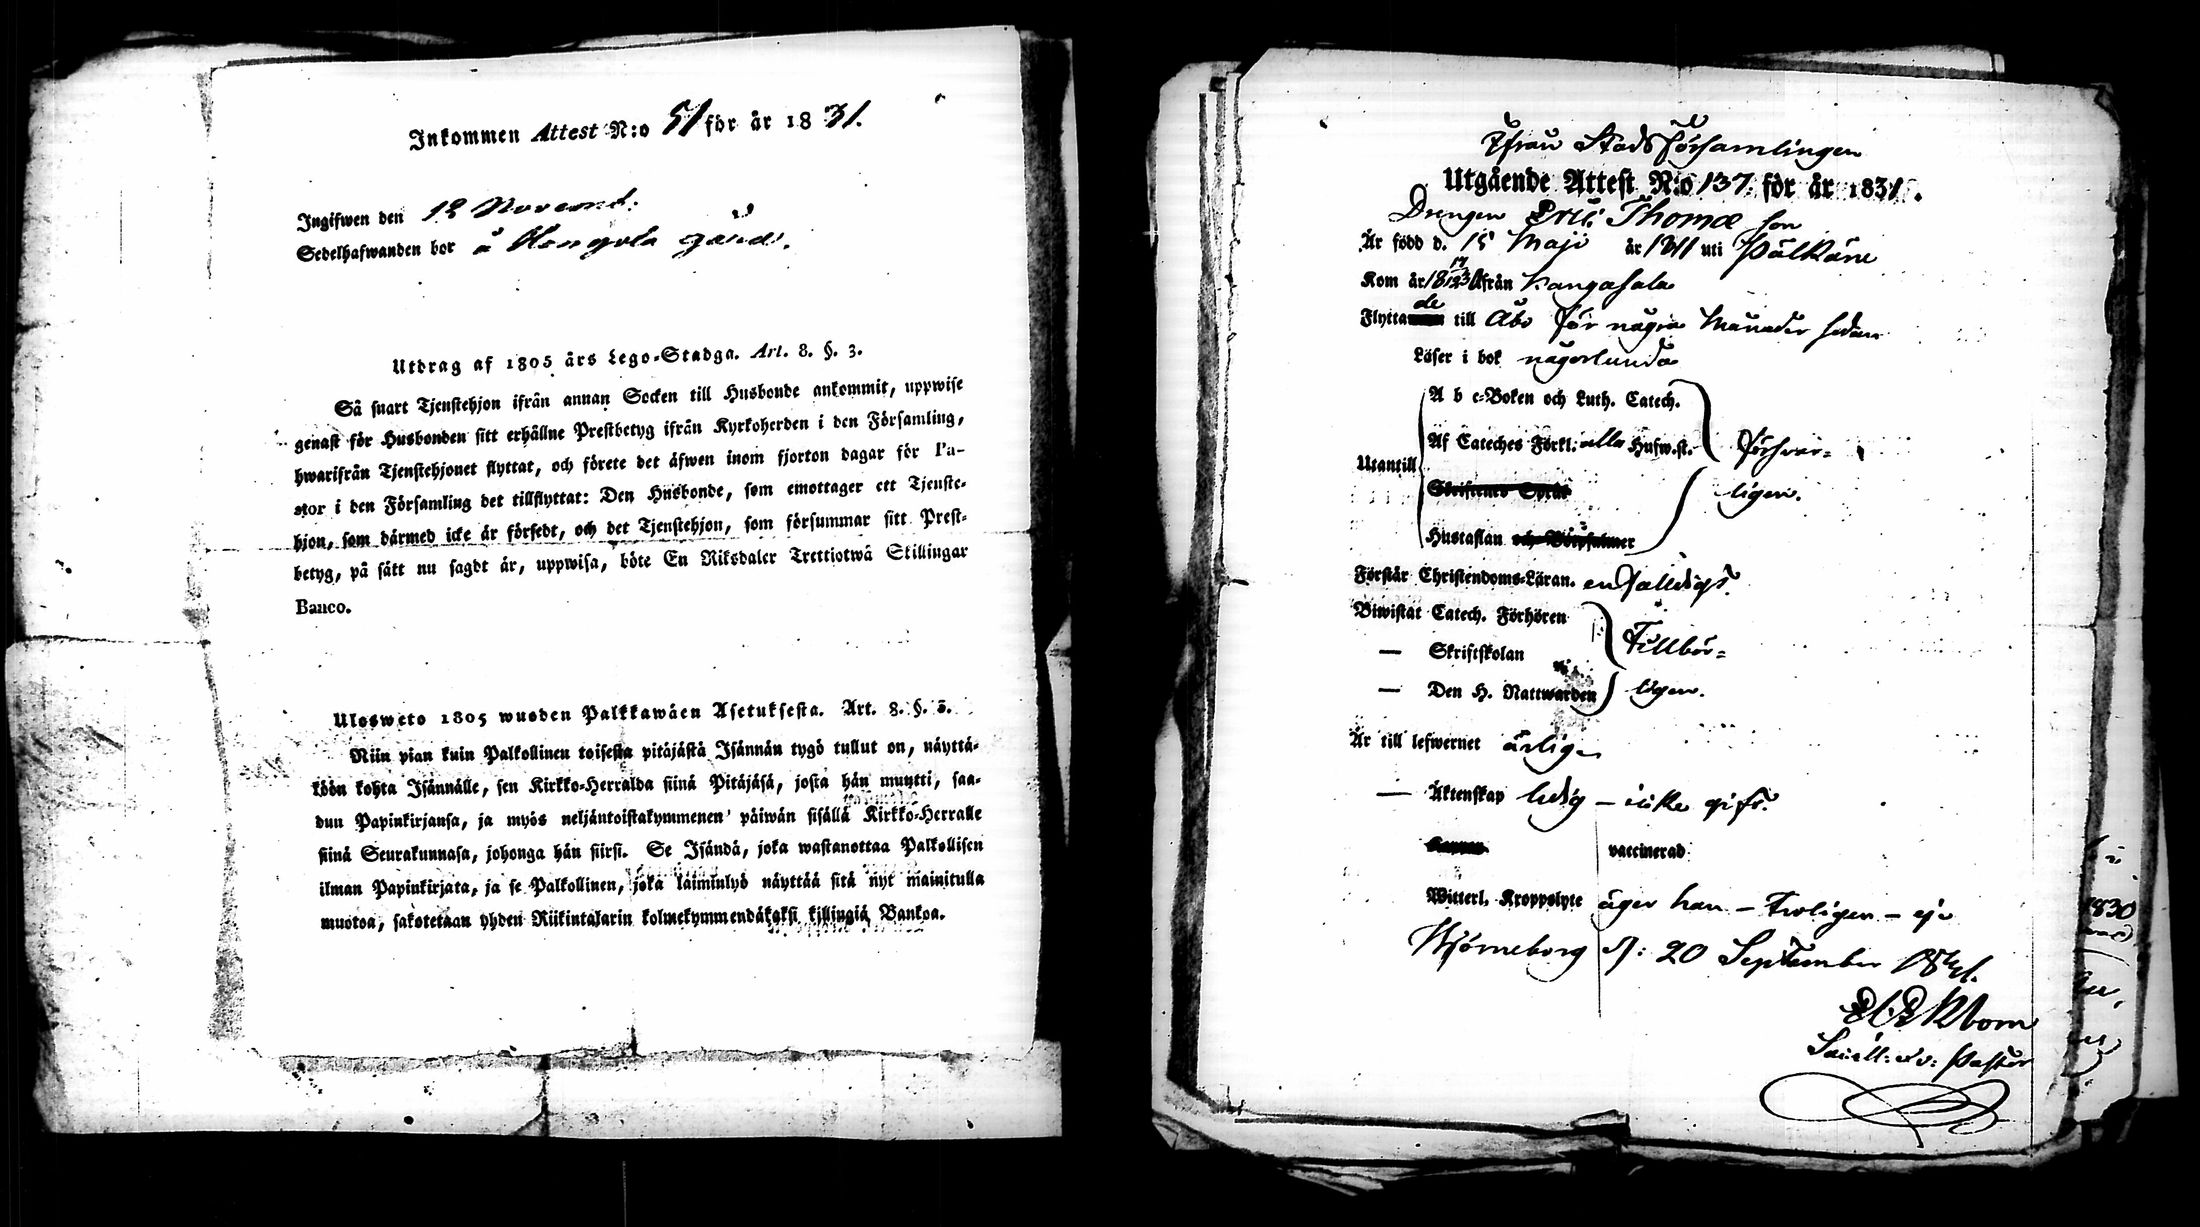 Inkommen Attest N:o 51 för år 1831.
Ingifwen den 12 Novemb:
Sedelhafwanden bor å Kongola gård.
Utdrag af 1805 års Lego-Stadga. Art. 8. §. 3.
Så snart Tjenstehjon ifrån annan Socken till Husbonde ankommit, uppwise
genast för Husbonden sitt erhållne Prestbetyg ifrån Kyrkoherden i den Församling,
hwarifrån Tjenstehjonet flyttat, och förete det äfwen inom fjorton dagar för Pa-
stor i den Församling det tillflyttat: Den Husbonde, som emottager ett Tjenste-
hjon, som därmed icke är försedt, och det Tjenstehjon, som försummar sitt Prest-
betyg, på sätt nu sagdt är, uppwisa, böte En Riksdaler Trettiotwå Skillingar
Banco.
Ulosweto 1805 wuoden Palkkawäen Asetuksesta. Art. 8. §. 3.
Niin pian kuin Palkollinen toisesta pitäjästä Isännän tygö tullut on, näyttä-
köön kohta Isännälle, sen Kirkko-Herralda siinä Pitäjäsä, josta hän muutti, saa-
dun Papinkirjansa, ja myös neljäntoistakymmenen päiwän sisällä Kirkko-Herralle
siinä Seurakunnasa, johonga hän siirsi. Se Isändä, joka wastanottaa Palkollisen
ilman Papinkirjata, ja se Palkollinen, joka laiminlyö näyttää sitä nyt mainitulla
muotoa, sakotetaan yhden Riikintalarin kolmekymmendäkaksi killingiä Bankoa.
Ifrån Stadsförsamlingen
Utgående Attest N:o 137. för år 1831.
Drengen Eric Thomæ son
Är född d. 15 Maji år 1811 uti Pälkäne
Kom år 18 från Kangasala
Flyttade till Åbo för några Månader sedan
Läser i bok någorlunda
A b c-Boken och Luth. Catech.
Af Cateches Förkl. alla Hufw.st. försvar-
Utantill
Skriftenes Språk ligen.
Hustaflan och Bötpsalmer
Förstår Christendoms-Läran. enfaldigt.
Biwistat Catech. Förhören
— Skriftskolan Tillbör-
— Den H. Nattwarden ligen.
Är till lefwernet ärlig
— Äktenskap ledig – icke gift.
vaccinerad
Witterl. Kroppslyte äger han – troligen – ej
Björneborg d: 20 September 1831.
Ekbom
Pastor
1830